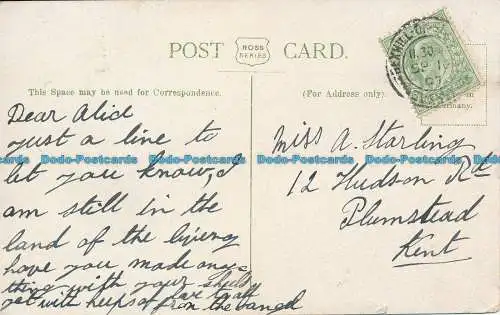 POST ROSS SERIES CARD.
This Space may be used for Correspondence.
(For Address only).
Dear Alice
just a line to
let you know, I
am still in the
land of the living
have you made any
thing with your
yet with heeps of love to all
from the
Miss A. Starling
12 Hudson Rd
Plumstead
Kent
BEXHILL-O
11.30
SP 1
07
in
Germany.
Dodo-Postcards Dodo-Postcards Dodo-Postcards Dodo-Postcards Dodo-Postcards
Dodo-Postcards Dodo-Postcards Dodo-Postcards Dodo-Postcards Dodo-Postcards